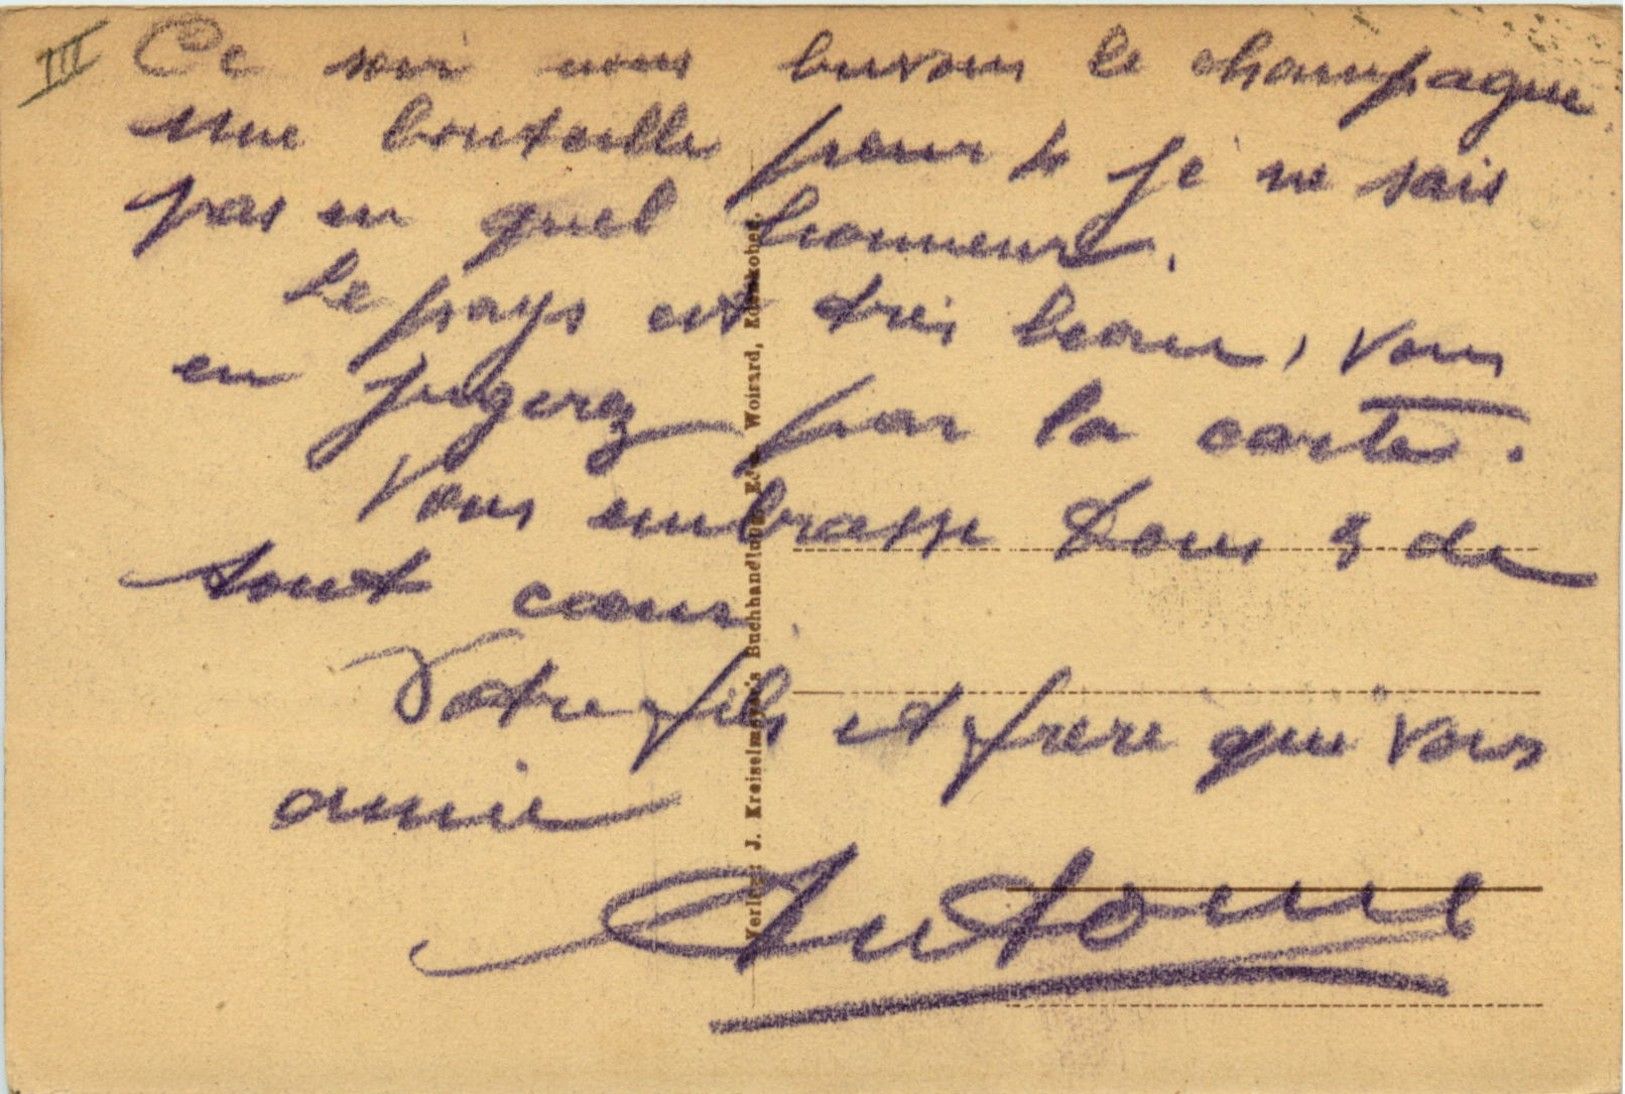 III
Ce soir nous buvons le champagne
une bouteille pour 4 je ne sais
pas en quel honneur.
Le pays est très beau, vous
en jugerez par la carte.
Vous embrasse tous 3 de
tout cœur
Votre fils et frère que vous
aimie
Antoine
Verlag: J. Kreiselmeyer's Buchhandlung, E. Woirard, Edenkoben.